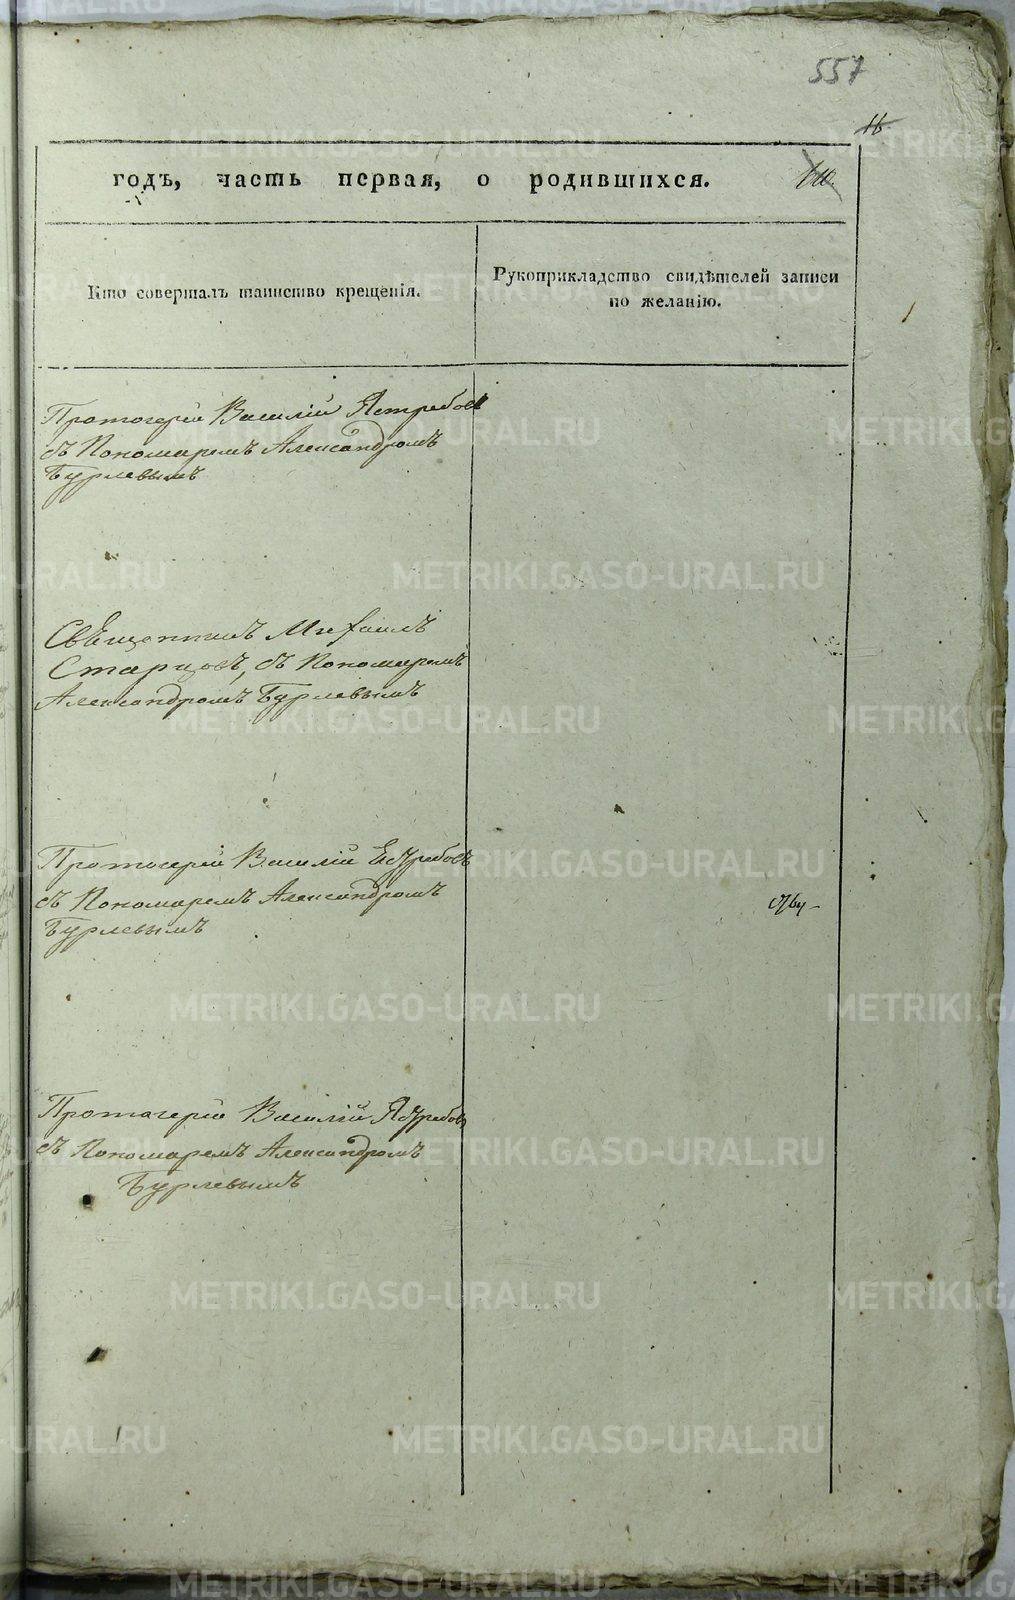 557
16.
годъ, часть первая, о родившихся.
Кто совершалъ таинство крещенія.
Рукоприкладство свидѣтелей записи
по желанію.
Протоіерей Василій Ястребовъ
съ Пономаремъ Александромъ
Бурлевымъ
Священникъ Михаилъ
Старцовъ, съ Пономаремъ
Александромъ Бурлевымъ
Протоіерей Василій Ястребовъ
съ Пономаремъ Александромъ
Бурлевымъ
Протоіерей Василій Ястребовъ
съ Пономаремъ Александромъ
Бурлевымъ
METRIKI.GASO-URAL.RU